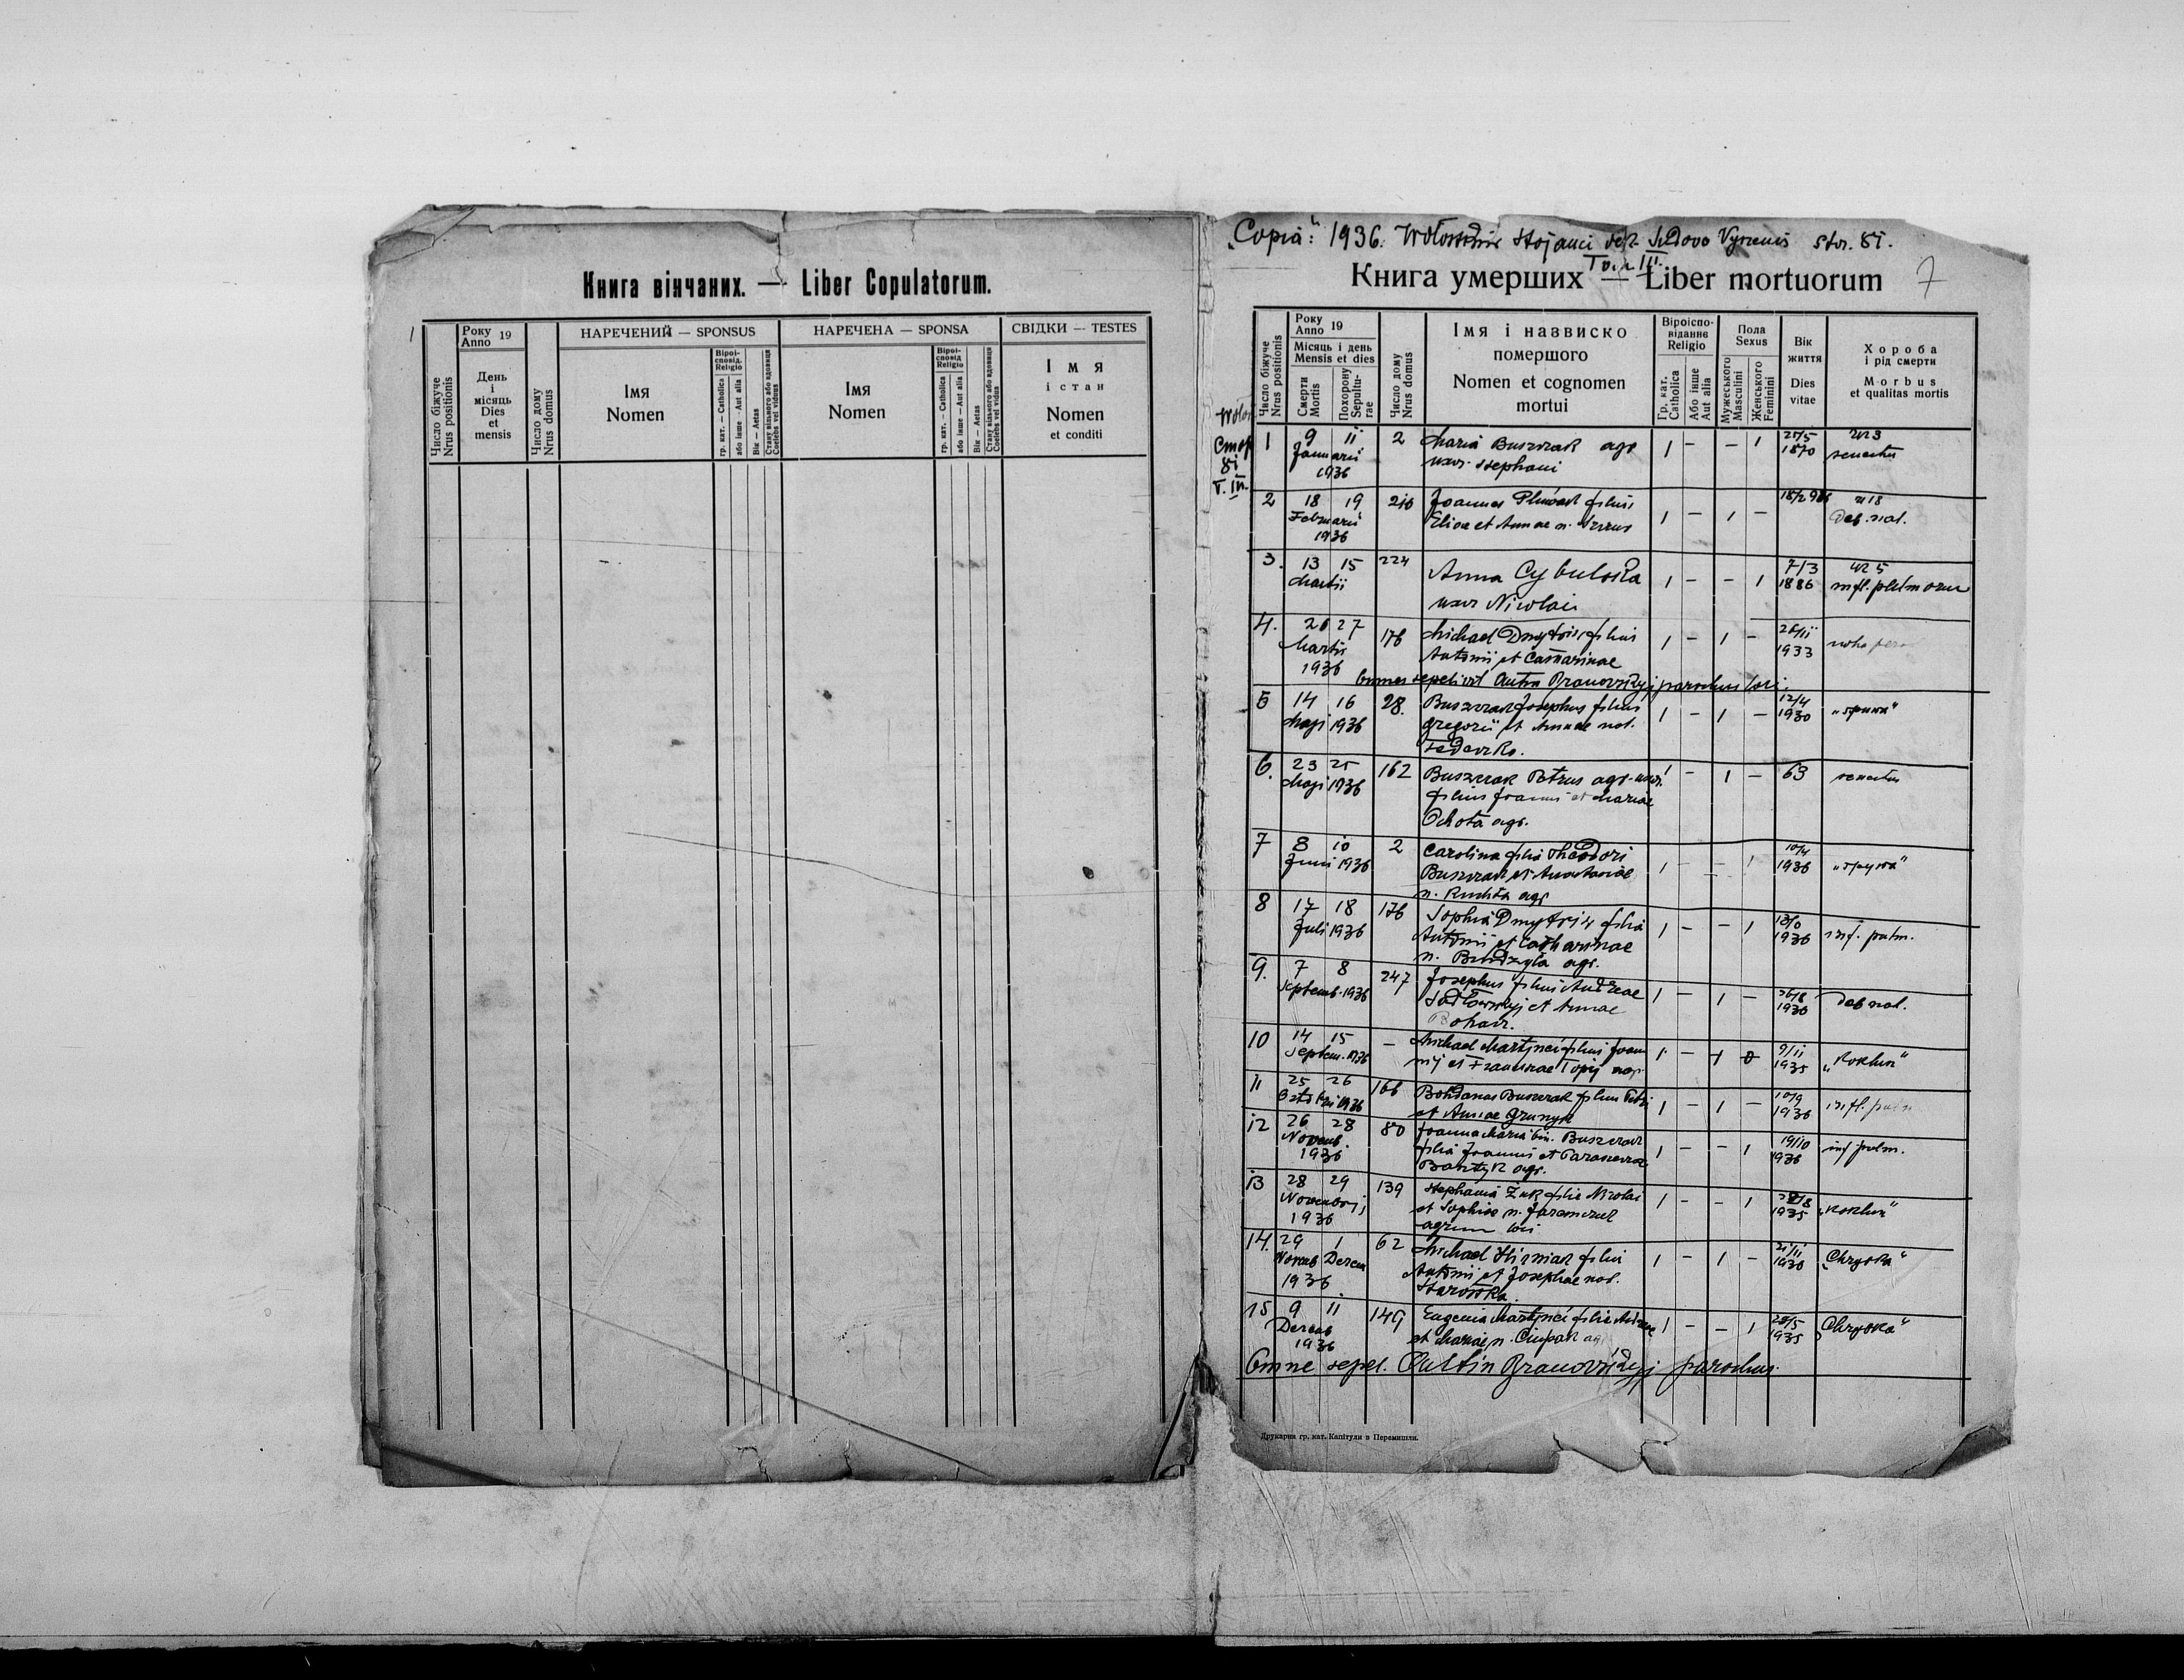 Книга вінчаних. — Liber Copulatorum.
1
Число біжуче
Nrus positionis
Року
Anno 19
День
і
місяць
Dies
et
mensis
Число дому
Nrus domus
НАРЕЧЕНИЙ — SPONSUS
Імя
Nomen
Віроі-
сповід.
Religio
гр. кат. — Catholica
або інше — Aut alia
Вік — Aetas
Стану вільного або вдовиця
Coelebs vel viduus
НАРЕЧЕНА — SPONSA
Імя
Nomen
Віроі-
сповід
Religio
гр. кат. — Catholica
або інше — Aut alia
Вік — Aetas
Стану вільного або вдовиця
Coelebs vel vidua
СВІДКИ — TESTES
Імя
і стан
Nomen
et conditi
„Copia": 1936. Stojanci Sudova Vyszenis stor. 81.
Tom III.
Книга умерших — Liber mortuorum
7
Число біжуче
Nrus positionis
Року
Anno 19
Місяць і день
Mensis et dies
Смерти
Mortis
Похорону
Sepultu-
rae
Число дому
Nrus domus
Імя і назвиско
помершого
Nomen et cognomen
mortui
Віроіспо-
віданнє
Religio
Гр. кат.
Catholica
Або інше
Aut alia
Пола
Sexus
Мужеського
Masculini
Женського
Feminini
Вік
життя
Dies
vitae
Хороба
і рід смерти
Morbus
et qualitas mortis
Стор
81
T. III.
1 9 11 2 Maria Buszczak agr 1 – – 1 25/5 nr 3
Januarii uxor Stephani 1870 senectus
1936
2 18 19 210 Joannes filius 1 – 1 – 18/2 936 nr 18
Februarii Eliae et Annae n. Deb. nat.
1936
3. 13 15 224 Anna Cybulska 1 – – 1 7/3 nr 5
Martii uxor Nicolai 1886 infl. pulmonum
4. 26 27 176 Michael Dmytriv filius 1 – 1 – 26/11
Martii Antonii et Catharinae 1933
1936
Omnes sepelivit Branovskyj parochus loci.
5 14 16 28. Buszczak Josephus filius 1 – 1 – 12/4 „грипа"
Maji 1936 Gregorii et Annae nat. 1930
Fedevzko.
6. 23 25 162 Buszczak Petrus agr. 1 – 1 – 63 senectus
Maji 1936 filius Joannis et Mariae
Ochota agr.
7 8 10 2 Carolina filia Theodori 1 – – 1 10/4
Juni 1936 Buszczak et Anastasiae 1936
n. Ruchta agr
8 17 18 176 Sophia Dmytriv filia 1 – – 1 1936 inf. pulm.
Juli 1936 Antonii et Catharinae
n. Budzyla agr.
9. 7 8 247 Josephus filius Andreae 1 – 1 – 26/8 deb nat.
Septemb. 1936 et Annae 1936
10 14 15 – Michael Martynci filius Joan- 1 – 1 0 9/11 „Koklusz"
Septem. 1936 nij et Franciscae Topij agr. 1935
11 25 26 166 Bohdanus Buszczak filius Petri 1 – 1 – 10/9 infl. pulm
1936 et Annae Hrynyk 1936
12 26 28 80 Joanna Maria bin. Buszczak 1 – – 1 19/10 inf pulm.
Novemb. filia Joannis et Parascevae 1936
1936 Bartyk agr.
13 28 29 139 Stephania Żuk filia Nicolai 1 – – 1 „Koklusz"
Novembrij et Sophiae n. Jaremczuk 1935
1936
14. 29 1 62 Michael Hirniak filius 1 – 1 – 21/11 „Chrypka"
Novemb Decem Antonii et Josephae nat. 1930
1936 Starostka.
15 9 11 149 Eugenia Martynci filia Andreae 1 – – 1 28/5 „Chrypka"
Decemb et Mariae n. Ciupak ag 1935
1936
Omne sepel. Branovskyj parochus.
Друкарня гр. кат. Капітули в Перемишли.